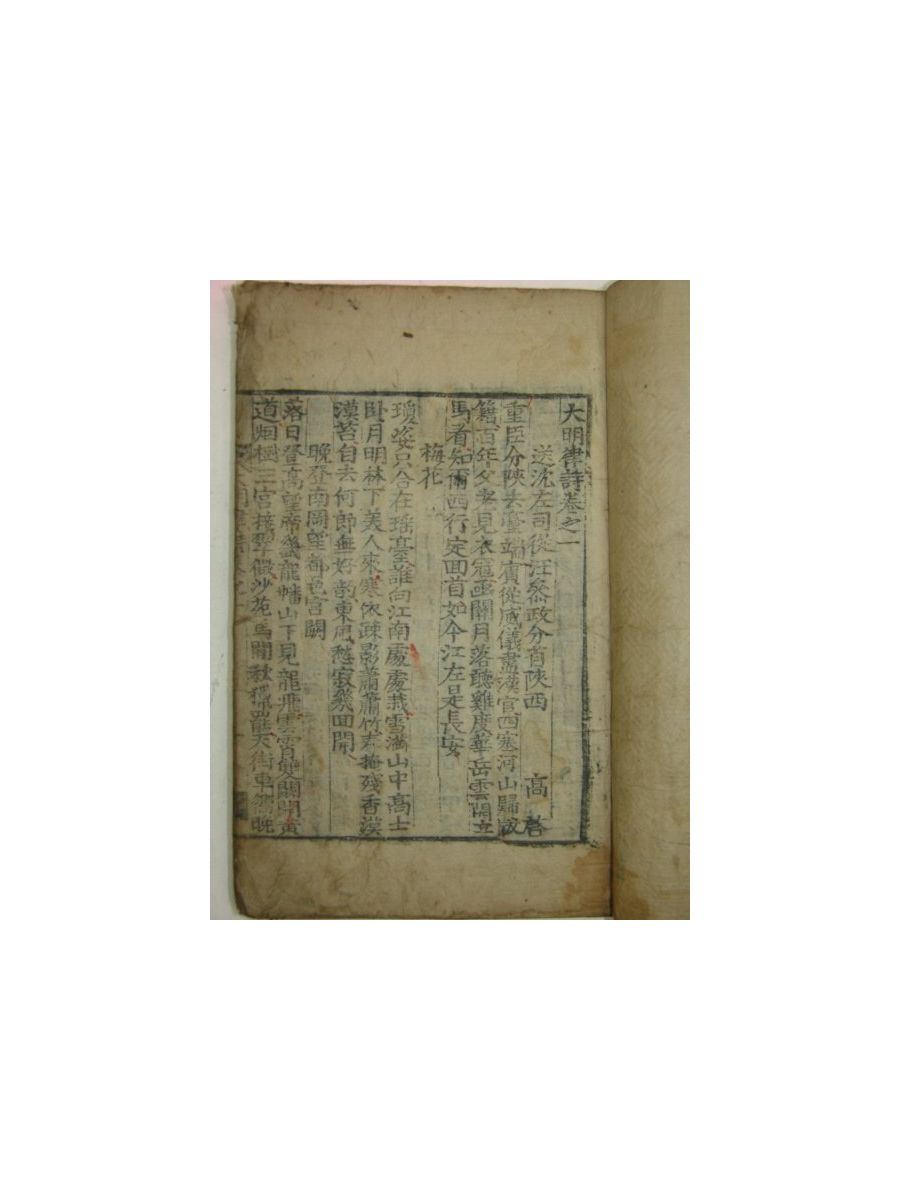 大明律詩卷之一
送沈左司從汪叅政分省陜西 高啓
重臣分陜去臺端賓從威儀盡漢官西塞河山歸版
籍百年父老見衣冠函關月落聽雞度華岳雲開立
馬看知爾西行定回首如今江左是長安
梅花
瓊姿只合在瑶臺誰向江南處處栽雪滿山中高士
卧月明林下美人來寒依疎影蕭蕭竹春掩殘香漠
漠苔自去何郎無好韵東風愁寂幾回開
晚登南岡望都邑宮闕
落日登高望帝畿龍蟠山下見龍飛雲霄雙闕開黄
道烟樹三宮接翠微沙苑馬閒秋獵罷天街車簡晩